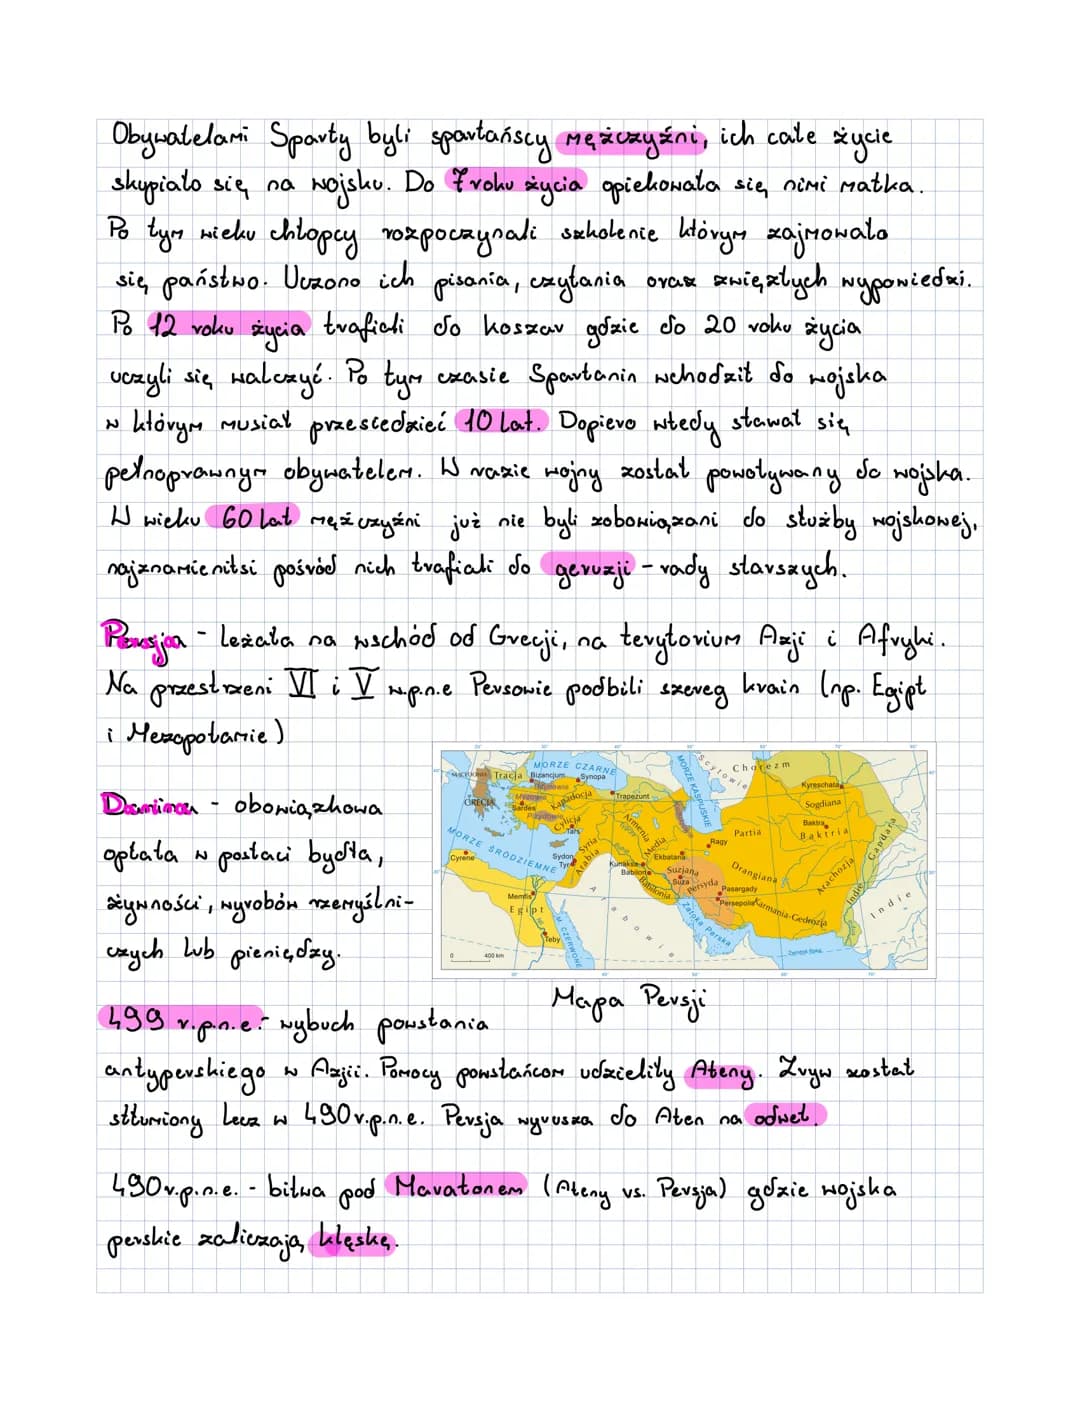 Obywatelami Sparty byli spartańscy mężczyźni, ich całe życie
skupiało się na wojsku. Do 7 roku życia opiekowała się nimi matka.
Po tym wieku chłopcy rozpoczynali szkolenie którym zajmowało
się państwo. Uczono ich pisania, czytania oraz zwięzłych wypowiedzi.
Po 12 roku życia trafiali do koszar gdzie do 20 roku życia
uczyli się walczyć. Po tym czasie Spartanin wchodził do wojska
w którym musiał przesiedzieć 10 lat. Dopiero wtedy stawał się
pełnoprawnym obywatelem. W razie wojny został powoływany do wojska.
W wieku 60 lat mężczyźni już nie byli zobowiązani do służby wojskowej,
najznamienitsi pośród nich trafiali do geruzji - rady starszych.
Persja - leżała na wschód od Grecji, na terytorium Azji i Afryki.
Na przestrzeni VI i V w.p.n.e Persowie podbili szereg krain (np. Egipt
i Mezopotamie)
Danina - obowiązkowa
opłata w postaci bydła,
żywności, wyrobów rzemyślni-
czych lub pieniędzy.
MACEDONIA Tracja Bizancjum MORZE CZARNE Synopa
GRECJA Sardes Kapadocja Trapezunt
Cylicja Tars Armenia
MORZE ŚRÓDZIEMNE
MORZE KASPIJSKIE
Scytowie Chorezm
Kyreschata
Sogdiana
Baktra
Baktria
Partia
Gandara
Ragy
Media
Ekbatana
Drangiana
Arachozja
Cyrene
Sydon
Tyr
Syria
Arabia
Kunaksa
Babilon
Babilonia
Suzjana
Suza
Persyda
Pasargady
Persepolis
Karmania-Gedrozja
Indie
Indie
Memfis
Egipt
Teby
M. CZERWONE
Arabowie
Zatoka Perska
0 400 km
Mapa Persji
499 r.p.n.e: wybuch powstania
antyperskiego w Azjii. Pomocy powstańcom udzieliły Ateny. Zryw został
stłumiony lecz w 490r.p.n.e. Persja wyrusza do Aten na odwet.
490r.p.n.e. - bitwa pod Maratonem (Ateny vs. Persja) gdzie wojska
perskie zaliczają klęskę.